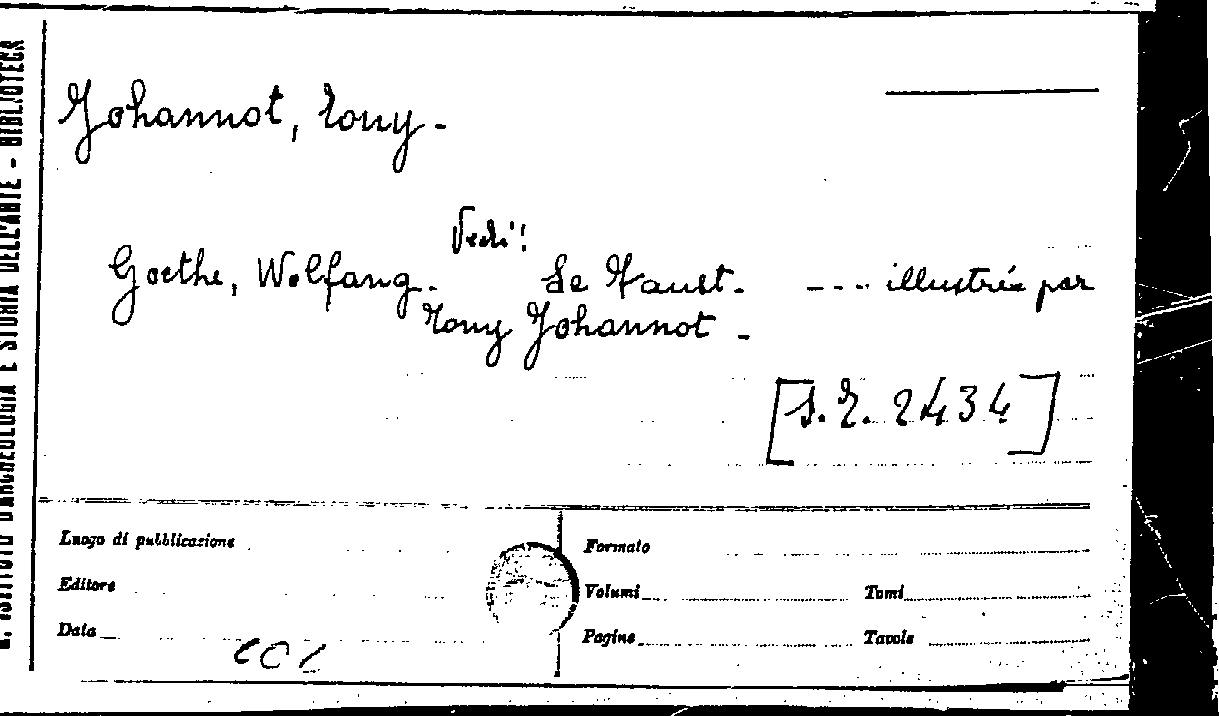 R. ISTITUTO D'ARCHEOLOGIA E STORIA DELL'ARTE - BIBLIOTECA
Johannot, Tony-
Vedi!
Goethe, Wolfang.- Le Faust. - --- illustrée par
Tony Johannot -
[S.R. 2434]
Luogo di pubblicazione
Formato
Editore
Volumi
Tomi
Data
Pagine
Tavole